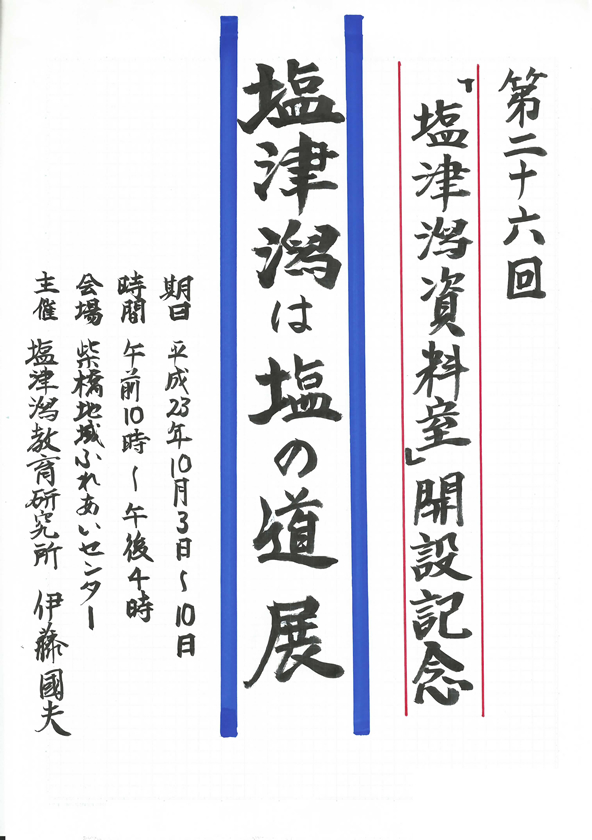 第二十六回
「塩津潟資料室」開設記念
塩津潟は塩の道展
期日 平成23年10月3日〜10日
時間 午前10時〜午後4時
会場 柴橋地域ふれあいセンター
主催 塩津潟教育研究所 伊藤國夫